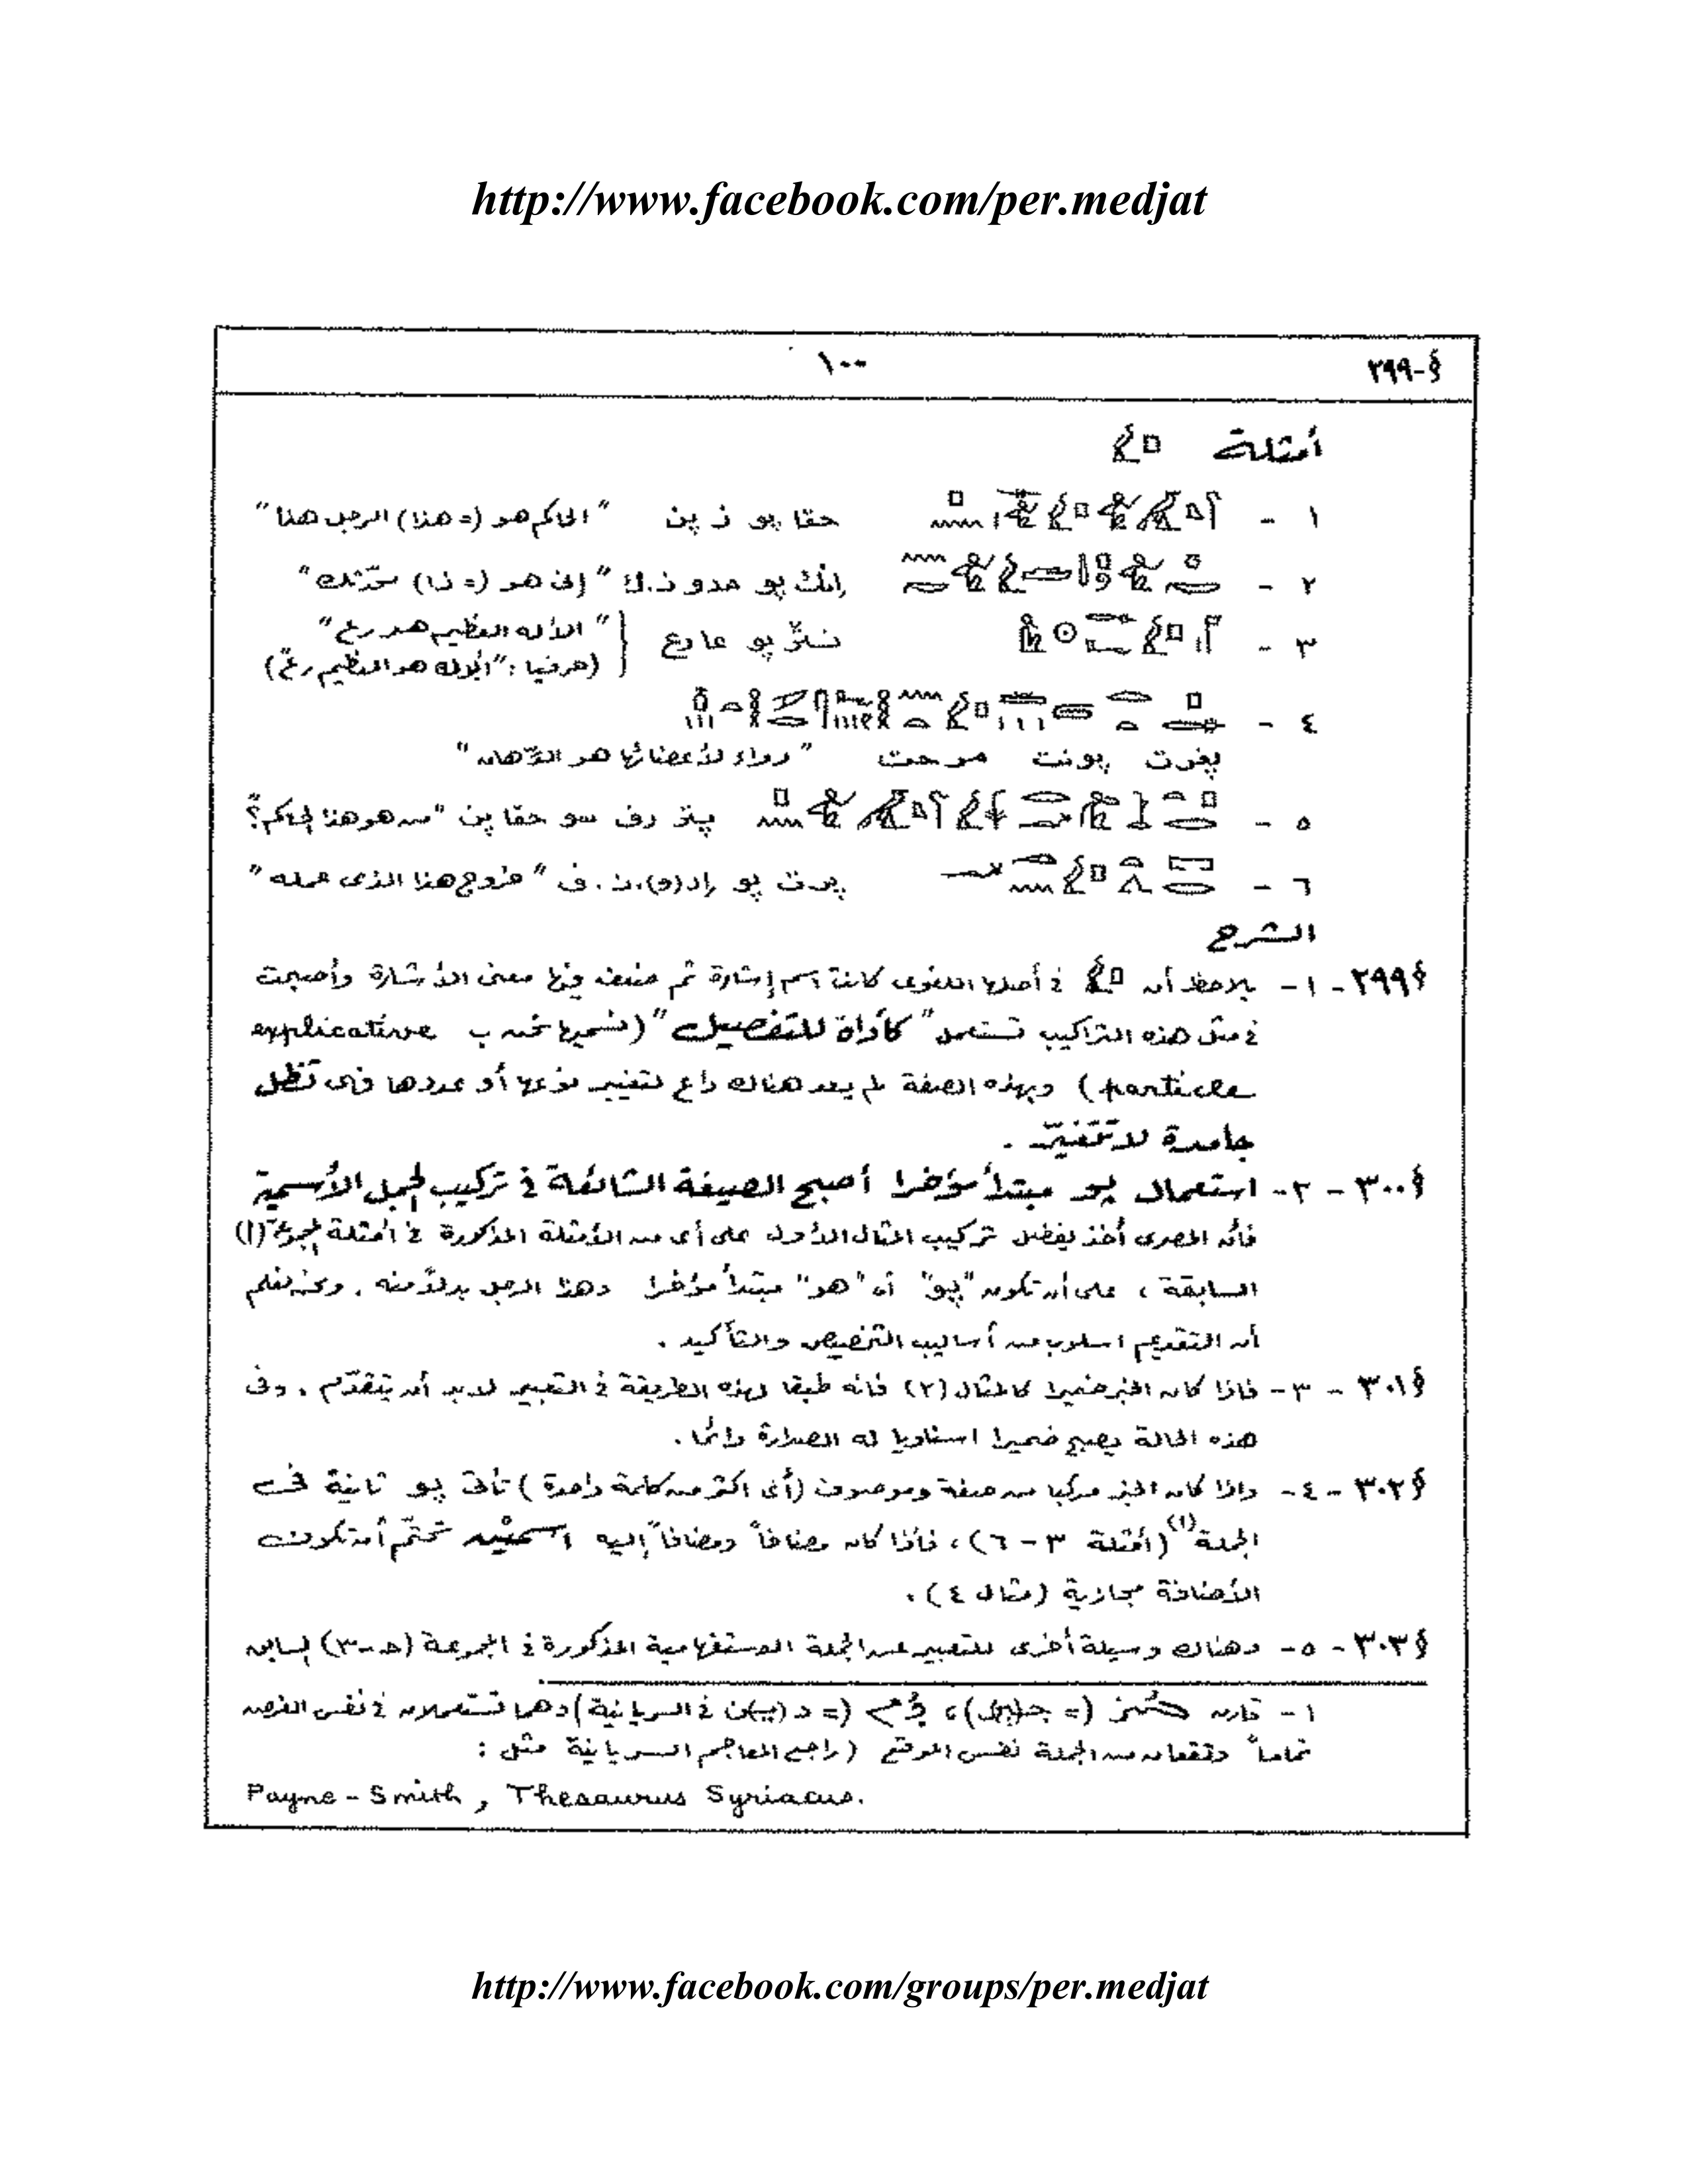 http://www.facebook.com/per.medjat
§-٢٩٩ ١٠٠
أمثلة
١ - حقا پو ز پن "الحاكم هو (= هذا) الرجل هذا"
٢ - إنك پو مدو ن.ك "إنى هو (= ذا) محدّثك"
٣ - نتر پو عا رع "الأله العظيم هو رع"
(حرفيا: "الإله هو العظيم رع")
٤ -
پخرت پو نت مرحت "دواء لأعضائها هو الدّهان"
٥ - پتر رف سو حقا پن "من هو هذا الحاكم؟"
٦ - پرت پو إر(و).ن.ف "خروج هذا الذى عمله"
الشرح
§٢٩٩ - ١ - يلاحظ أن فى أصلها اللغوى كانت اسم إشارة ثم ضعف فيها معنى الأشارة وأصبحت
فى مثل هذه التراكيب تستعمل "كأداة للتفصيل" (نسميها نحن ب explicative
particle) وبهذه الصفة لم يعد هناك داع لتغيير نوعها أو عددها فهى تظل
جامدة لا تتغيّر .
§٣٠٠ - ٢ - استعمال پو مبتدأ مؤخرا أصبح الصيغة الشائعة فى تركيب الجمل الأسمية
فأن المصرى أخذ يفضل تركيب المثال الأول على أى من الأمثلة المذكورة فى أمثلة المجموعة (ا)
السابقة ، على أن تكون "پو" أى "هو" مبتدأ مؤخرا وهذا الرجل بدلاً منه . ونحن نعلم
أن التقديم اسلوب من أساليب التخصيص والتأكيد .
§٣٠١ - ٣ - فاذا كان الخبر ضميرا كالمثال (٢) فانه طبقا لهذه الطريقة فى التعبير لابد أن يتقدّم . وفى
هذه الحالة يصبح ضميرا اسناديا له الصدارة دائما .
§٣٠٢ - ٤ - واذا كان الخبر مركبا من صفة وموصوف (أى اكثر من كلمة واحدة) تأتى پو ثانية فى
الجملة (١) (أمثلة ٣ - ٦) ، فأذا كان مضافاً ومضافاً إليه اسميْن تحتّم أن تكون
الأضافة مجازية (مثال ٤) .
§٣٠٣ - ٥ - وهناك وسيلة أخرى للتعبير عن الجملة الاستفهامية المذكورة فى المجموعة (حـ-٣) السابق
١ - قارن فى السريانية) وهما تستعملان فى نفس الغرض
تماماً وتقعان من الجملة نفس الموقع (راجع المعاجم السريانية مثل :
Payne - Smith , Thesaurus Syriacus.
http://www.facebook.com/groups/per.medjat